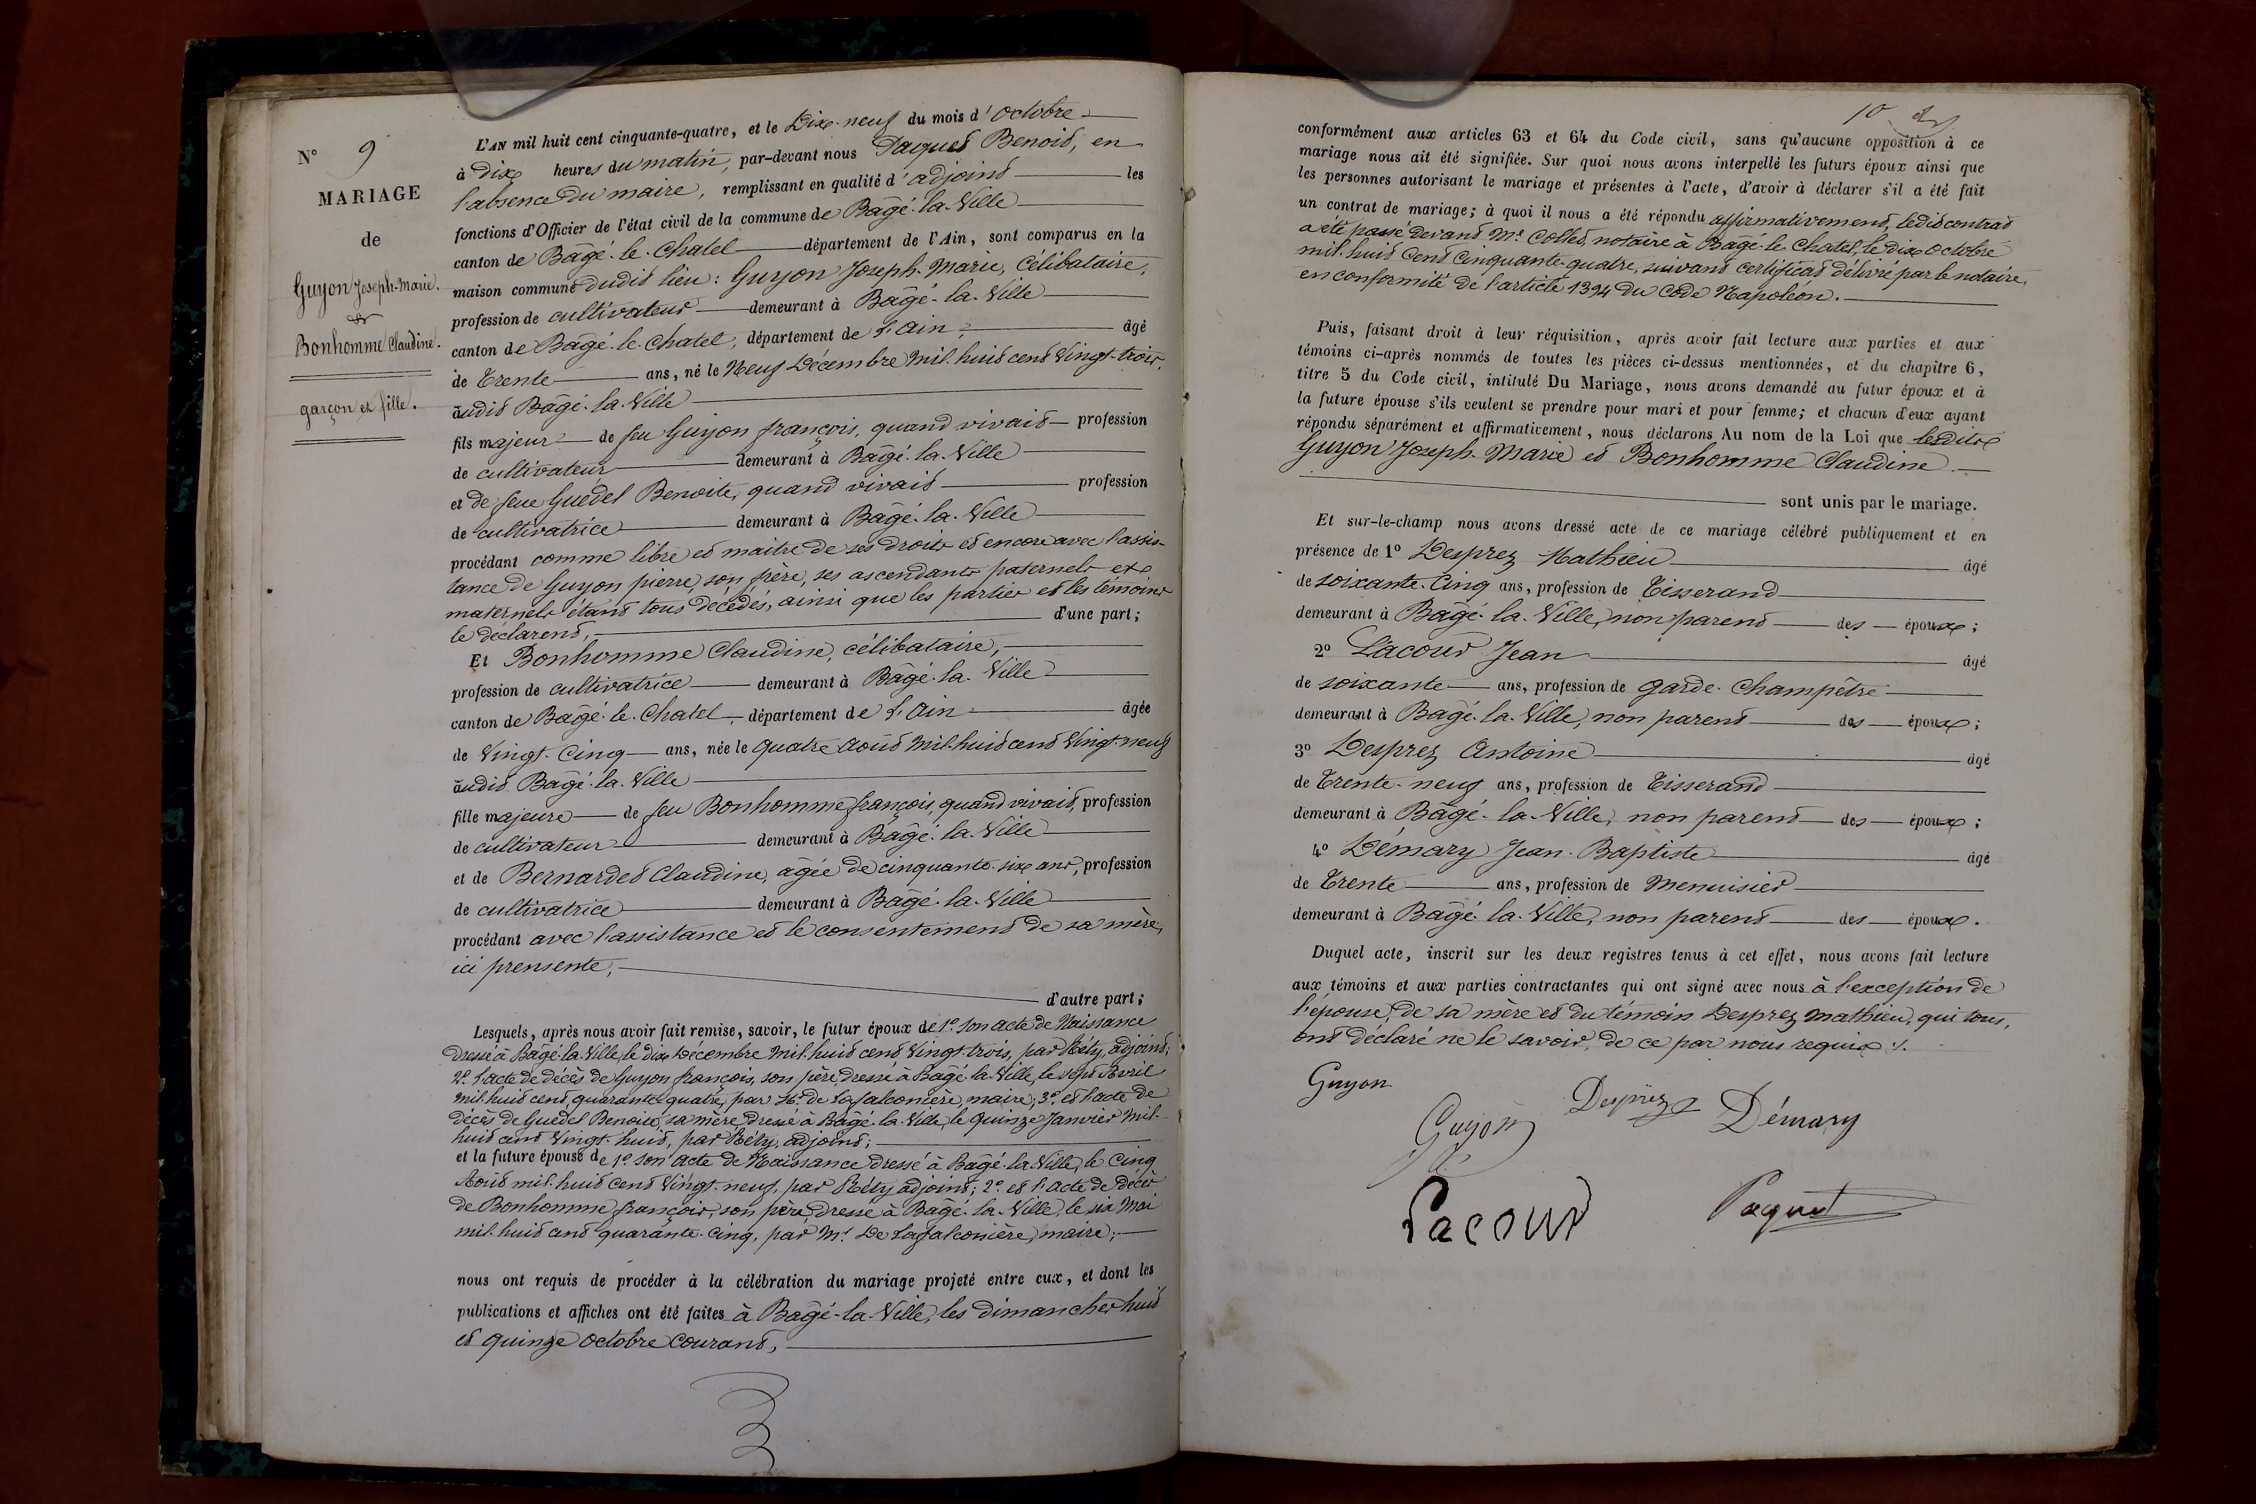 N° 9
MARIAGE
de
Guyon Joseph-Marie.
&
Bonhomme Claudine.
garçon et fille.
L'AN mil huit cent cinquante-quatre, et le Dix-neuf du mois d'Octobre
à dix heures du matin, par-devant nous Paquet Benoit, en
l'absence du maire, remplissant en qualité d'adjoint les
fonctions d'Officier de l'état civil de la commune de Bâgé-la-Ville
canton de Bâgé-le-Chatel département de l'Ain, sont comparus en la
maison commune dudit lieu : Guyon Joseph-Marie, Célibataire,
profession de cultivateur demeurant à Bâgé-la-Ville
canton de Bâgé-le-Chatel, département de l'Ain, âgé
de Trente ans, né le Neuf Décembre mil-huit cent vingt-trois,
audit Bâgé-la-Ville
fils majeur de feu Guyon françois, quand vivait profession
de cultivateur demeurant à Bâgé-la-Ville
et de feue Guedel Benoite, quand vivait profession
de cultivatrice demeurant à Bâgé-la-Ville
procédant comme libre et maitre de ses droits et encore avec l'assis-
tance de Guyon pierre, son frère, ses ascendants paternels et
maternels étant tous décédés, ainsi que les parties et les témoins
le déclarent, d'une part ;
Et Bonhomme Claudine, célibataire,
profession de cultivatrice demeurant à Bâgé-la-Ville
canton de Bâgé-le-Chatel, département de l'Ain âgée
de Vingt-Cinq ans, née le quatre Août mil-huit cent vingt-neuf
audit Bâgé-la-Ville
fille majeure de feu Bonhomme françois, quand vivait, profession
de cultivateur demeurant à Bâgé-la-Ville
et de Bernardet Claudine, agée de cinquante-six ans, profession
de cultivatrice demeurant à Bâgé-la-Ville
procédant avec l'assistance et le consentement de sa mère,
ici prensente, 
d'autre part ;
Lesquels, après nous avoir fait remise, savoir, le futur époux de 1° son acte de Naissance
dressé à Bâgé-la-Ville, le dix Décembre mil-huit cent vingt-trois, par Réty, adjoint ;
2° l'acte de décès de Guyon françois, son père, dressé à Bâgé-la-Ville, le sept Avril
mil-huit cent quarante-quatre, par Mr de Lafalconière, maire ; 3° et l'acte de
décès de Guedel Benoite, sa mère, dressé à Bâgé-la-Ville, le quinze Janvier mil-
huit cent vingt-huit, par Réty, adjoint ;
et la future épouse de 1° son acte de Naissance dressé à Bâgé-la-Ville, le Cinq
Août mil-huit cent vingt-neuf, par Réty, adjoint ; 2° et l'acte de décès
de Bonhomme françois, son père, dressé à Bâgé-la-Ville, le six Mai
mil-huit cent quarante-cinq, par Mr De Lafalconière, maire ;
nous ont requis de procéder à la célébration du mariage projeté entre eux, et dont les
publications et affiches ont été faites à Bâgé-la-Ville, les dimanches huit
et quinze Octobre courant,
10
conformément aux articles 63 et 64 du Code civil, sans qu'aucune opposition à ce
mariage nous ait été signifiée. Sur quoi nous avons interpellé les futurs époux ainsi que
les personnes autorisant le mariage et présentes à l'acte, d'avoir à déclarer s'il a été fait
un contrat de mariage ; à quoi il nous a été répondu affirmativement, ledit contrat
a été passé devant Me Collet, notaire à Bâgé-le-Chatel, le dix octobre
mil-huit cent cinquante-quatre, suivant certificat délivré par le notaire,
en conformité de l'article 1394 du Code Napoléon.
Puis, faisant droit à leur réquisition, après avoir fait lecture aux parties et aux
témoins ci-après nommés de toutes les pièces ci-dessus mentionnées, et du chapitre 6,
titre 5 du Code civil, intitulé Du Mariage, nous avons demandé au futur époux et à
la future épouse s'ils veulent se prendre pour mari et pour femme ; et chacun d'eux ayant
répondu séparément et affirmativement, nous déclarons Au nom de la Loi que lesdits
Guyon Joseph-Marie et Bonhomme Claudine
sont unis par le mariage.
Et sur-le-champ nous avons dressé acte de ce mariage célébré publiquement et en
présence de 1° Desprez Mathieu âgé
de soixante-cinq ans, profession de Tisserand
demeurant à Bâgé-la-Ville, non parent des époux ;
2° Lacour Jean âgé
de soixante ans, profession de garde-champêtre
demeurant à Bâgé-la-Ville, non parent des époux ;
3° Desprez Antoine âgé
de Trente-neuf ans, profession de Tisserand
demeurant à Bâgé-la-Ville, non parent des époux ;
4° Démary Jean-Baptiste âgé
de Trente ans, profession de Menuisier
demeurant à Bâgé-la-Ville, non parent des époux.
Duquel acte, inscrit sur les deux registres tenus à cet effet, nous avons fait lecture
aux témoins et aux parties contractantes qui ont signé avec nous à l'exception de
l'épouse, de sa mère et du témoin Desprez Mathieu, qui tous,
ont déclaré ne le savoir, de ce par nous requis ./.
Guyon
Guyon Desprez Démary
Lacour Paquet